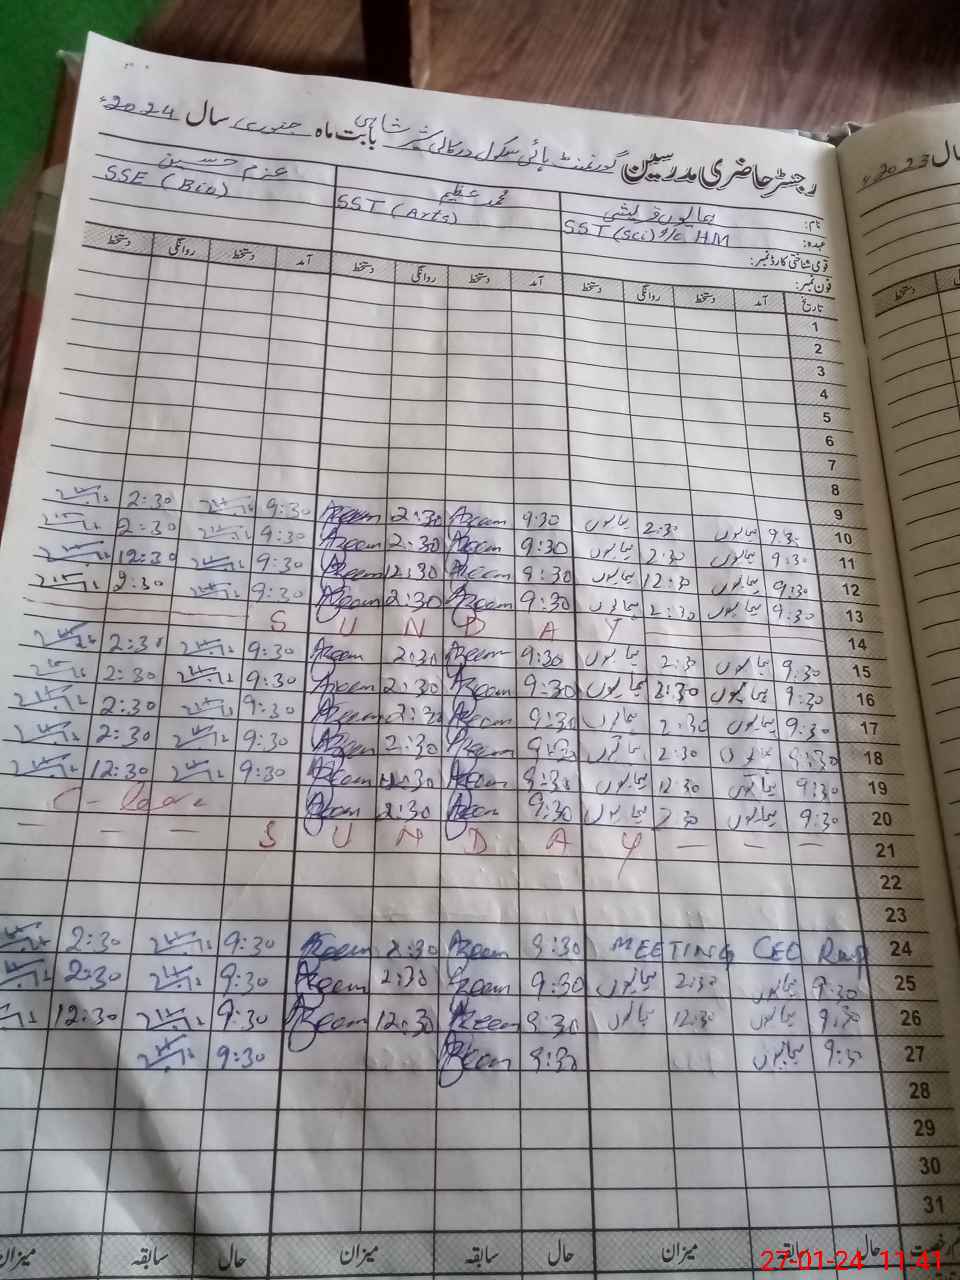 رجسٹر حاضری مدرسین گورنمنٹ ہائی سکول درکالی شیر شاہی بابت ماہ جنوری سال 2024ء
نام: ہمایوں قریشی محمد عظیم عزم حسین
عہدہ: SST (Sci) I/C HM SST (Arts) SSE (Bio)
قومی شناختی کارڈ نمبر:
فون نمبر:
تاریخ آمد دستخط روانگی دستخط آمد دستخط روانگی دستخط آمد دستخط روانگی دستخط
1
2
3
4
5
6
7
8
9 9:30 ہمایوں 2:30 ہمایوں 9:30 Azeem 2:30 Azeem 9:30 2:30
10 9:30 ہمایوں 2:30 ہمایوں 9:30 Azeem 2:30 Azeem 9:30 2:30
11 9:30 ہمایوں 12:30 ہمایوں 9:30 Azeem 12:30 Azeem 9:30 12:30
12 9:30 ہمایوں 2:30 ہمایوں 9:30 Azeem 2:30 Azeem 9:30 2:30
13
S U N D A Y
14
15 9:30 ہمایوں 2:30 ہمایوں 9:30 Azeem 2:30 Azeem 9:30 2:30
16 9:30 ہمایوں 2:30 ہمایوں 9:30 Azeem 2:30 Azeem 9:30 2:30
17 9:30 ہمایوں 2:30 ہمایوں 9:30 Azeem 2:30 Azeem 9:30 2:30
18 9:30 ہمایوں 2:30 ہمایوں 9:30 Azeem 2:30 Azeem 9:30 2:30
19 9:30 ہمایوں 12:30 ہمایوں 9:30 Azeem 12:30 Azeem 9:30 12:30
20 9:30 ہمایوں 2:30 ہمایوں 9:30 Azeem 2:30 Azeem C - leave
21 S U N D A Y
22
23
24 MEETING CEO RWP 9:30 Azeem 2:30 Azeem 9:30 2:30
25 9:30 ہمایوں 2:30 ہمایوں 9:30 Azeem 2:30 Azeem 9:30 2:30
26 9:30 ہمایوں 12:30 ہمایوں 9:30 Azeem 12:30 Azeem 9:30 12:30
27 9:30 ہمایوں 9:30 Azeem 9:30
28
29
30
31
حال سابقہ میزان حال سابقہ میزان حال سابقہ میزان
سال 2023ء
دستخط
27-01-24 11:41